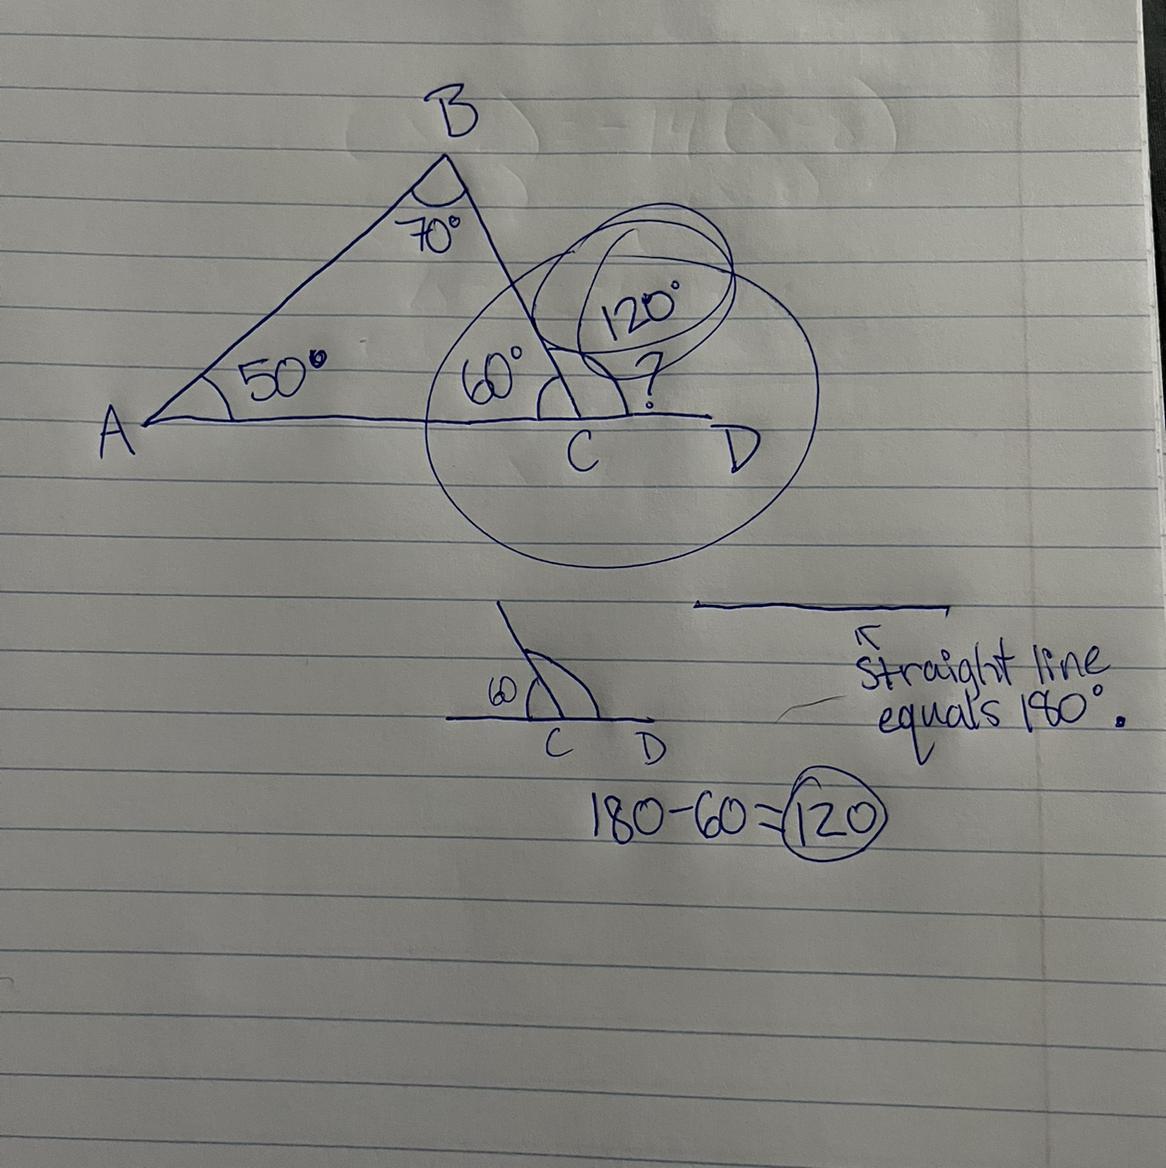 B
70°
120°
50°
60°
?
A
C
D
straight line
equals 180°.
60
C
D
180-60=120